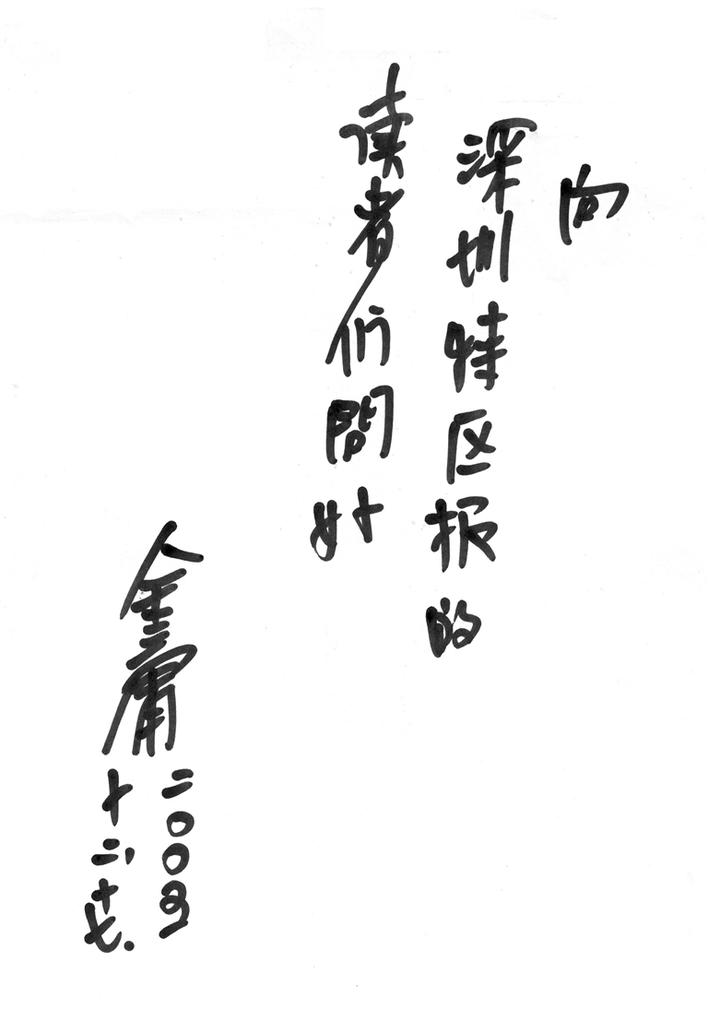 向
深圳特区报的
读者们問好
金庸
二〇〇
十二、十七.